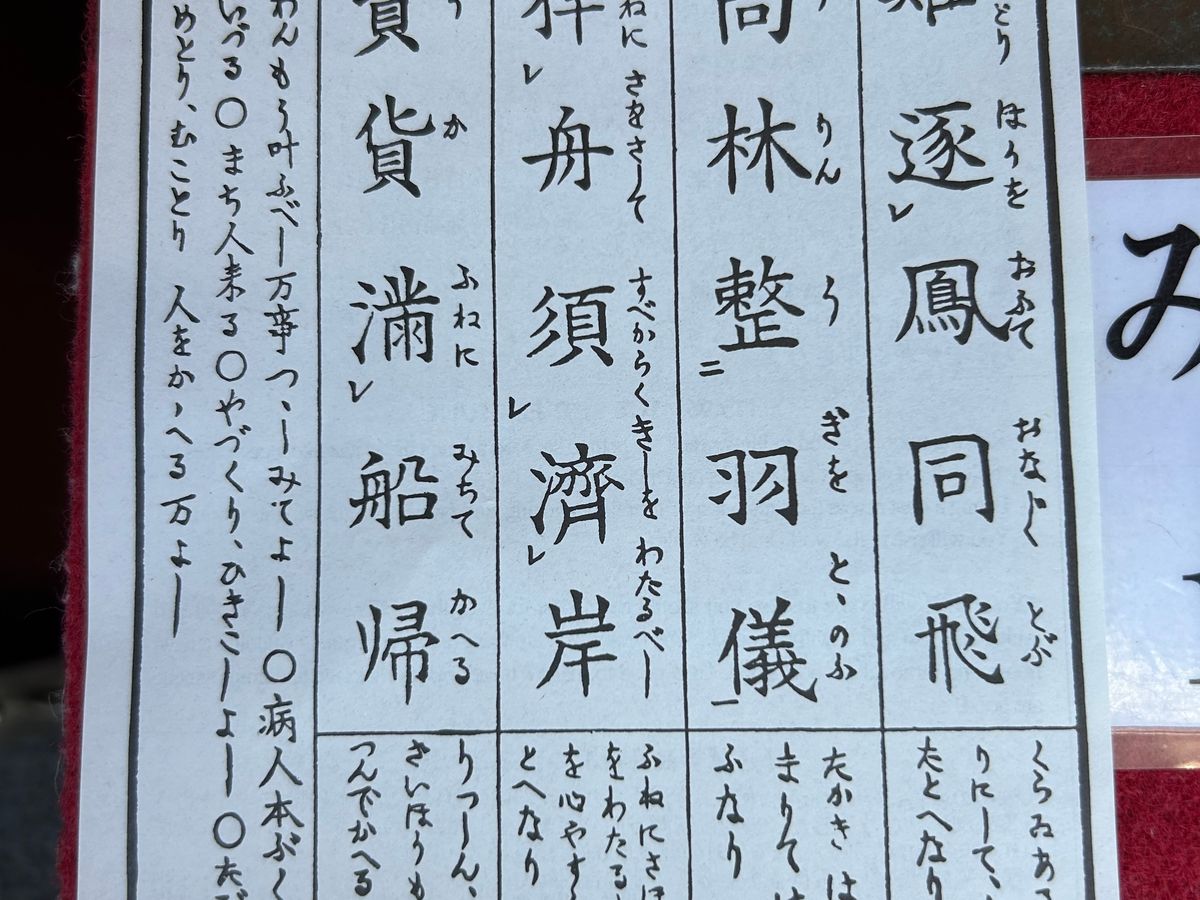 とり ほうを おふて おなじく とぶ
逐レ鳳同飛
りん う ぎを とゝのふ
林整二羽儀一
ねに さをさして すべからくきしを わたるべし
レ舟須レ済レ岸
か ふねに みちて かへる
貨満レ船帰
くらゐあ
りにして、
たとへなり
たかきは
まりては
ふなり
ふねにさほ
をわたる
を心やす
とへなり
りつしん、
さいほうも
つんでかへる
わんもう叶ふべし万事つゝしみてよし〇病人本ぶく
いづる〇まち人来る〇やづくり、ひきこしよし〇たび
めとり、むことり 人をかゝへる万よし
み